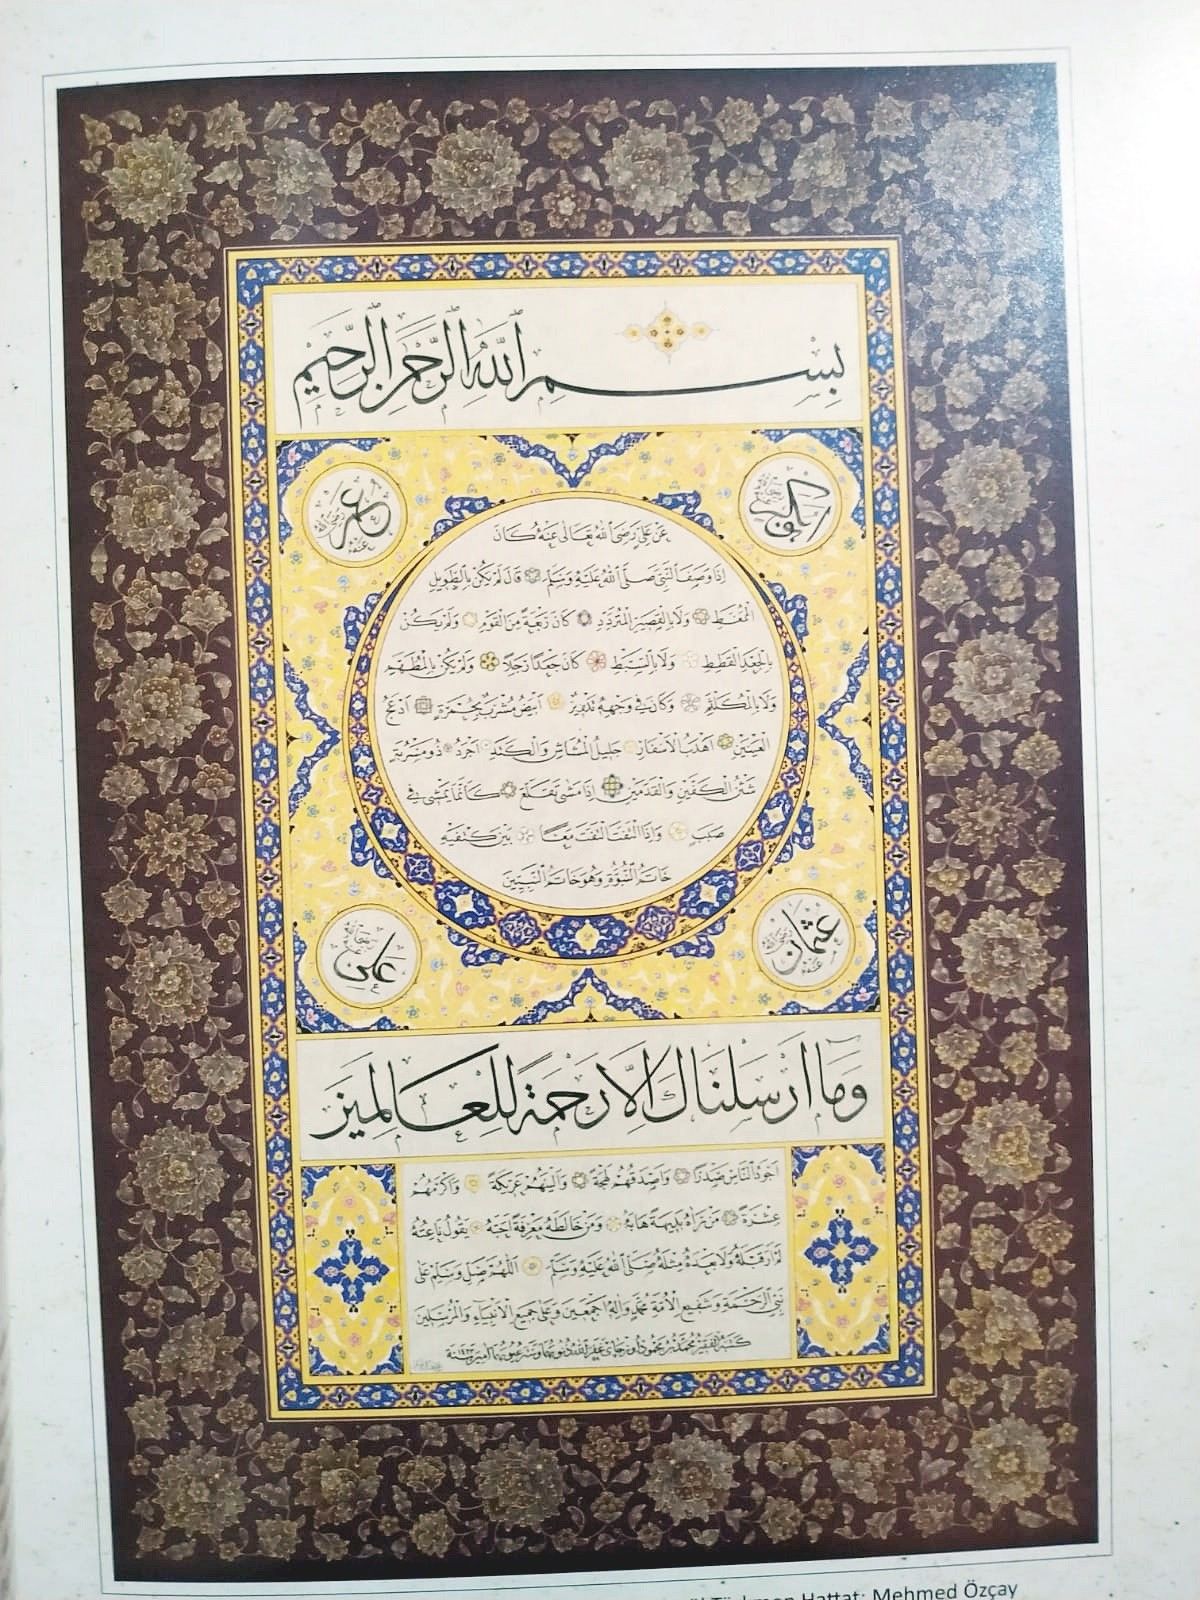 بِسْمِ اللّٰهِ الرَّحْمٰنِ الرَّحِيمِ
ابو بكر رضى الله عنه
عمر رضى الله عنه
عَنْ عَلِيٍّ رَضِيَ اللّٰهُ تَعَالٰى عَنْهُ كَانَ
اِذَا وَصَفَ النَّبِيَّ صَلَّى اللّٰهُ عَلَيْهِ وَسَلَّمَ قَالَ لَمْ يَكُنْ بِالطَّوِيلِ
الْمُمَّغِطِ وَلَا بِالْقَصِيرِ الْمُتَرَدِّدِ كَانَ رَبْعَةً مِنَ الْقَوْمِ وَلَمْ يَكُنْ
بِالْجَعْدِ الْقَطَطِ وَلَا بِالسَّبِطِ كَانَ جَعْدًا رَجِلًا وَلَمْ يَكُنْ بِالْمُطَهَّمِ
وَلَا بِالْمُكَلْثَمِ وَكَانَ فِي وَجْهِهِ تَدْوِيرٌ اَبْيَضُ مُشْرَبٌ بِحُمْرَةٍ اَدْعَجُ
الْعَيْنَيْنِ اَهْدَبُ الْاَشْفَارِ جَلِيلُ الْمُشَاشِ وَالْكَتَدِ اَجْرَدُ ذُو مَسْرُبَةٍ
شَثْنُ الْكَفَّيْنِ وَالْقَدَمَيْنِ اِذَا مَشٰى تَقَلَّعَ كَاَنَّمَا يَمْشِي فِي
صَبَبٍ وَاِذَا الْتَفَتَ الْتَفَتَ مَعًا بَيْنَ كَتِفَيْهِ
خَاتَمُ النُّبُوَّةِ وَهُوَ خَاتَمُ النَّبِيِّينَ
عثمان رضى الله عنه
على رضى الله عنه
وَمَا اَرْسَلْنَاكَ اِلَّا رَحْمَةً لِلْعَالَمِينَ
اَجْوَدُ النَّاسِ صَدْرًا وَاَصْدَقُهُمْ لَهْجَةً وَاَلْيَنُهُمْ عَرِيكَةً وَاَكْرَمُهُمْ
عِشْرَةً مَنْ رَاٰهُ بَدِيهَةً هَابَهُ وَمَنْ خَالَطَهُ مَعْرِفَةً اَحَبَّهُ يَقُولُ نَاعِتُهُ
لَمْ اَرَ قَبْلَهُ وَلَا بَعْدَهُ مِثْلَهُ صَلَّى اللّٰهُ عَلَيْهِ وَسَلَّمَ اَللّٰهُمَّ صَلِّ وَسَلِّمْ عَلٰى
نَبِيِّ الرَّحْمَةِ وَشَفِيعِ الْاُمَّةِ مُحَمَّدٍ وَاٰلِهِ اَجْمَعِينَ وَعَلٰى جَمِيعِ الْاَنْبِيَاءِ وَالْمُرْسَلِينَ
كَتَبَهُ الْفَقِيرُ مُحَمَّد اوزچاى غَفَرَ اللّٰهُ ذُنُوبَهُمَا وَسَتَرَ عُيُوبَهُمَا اٰمِينَ سنة
Hattat: Mehmed Özçay